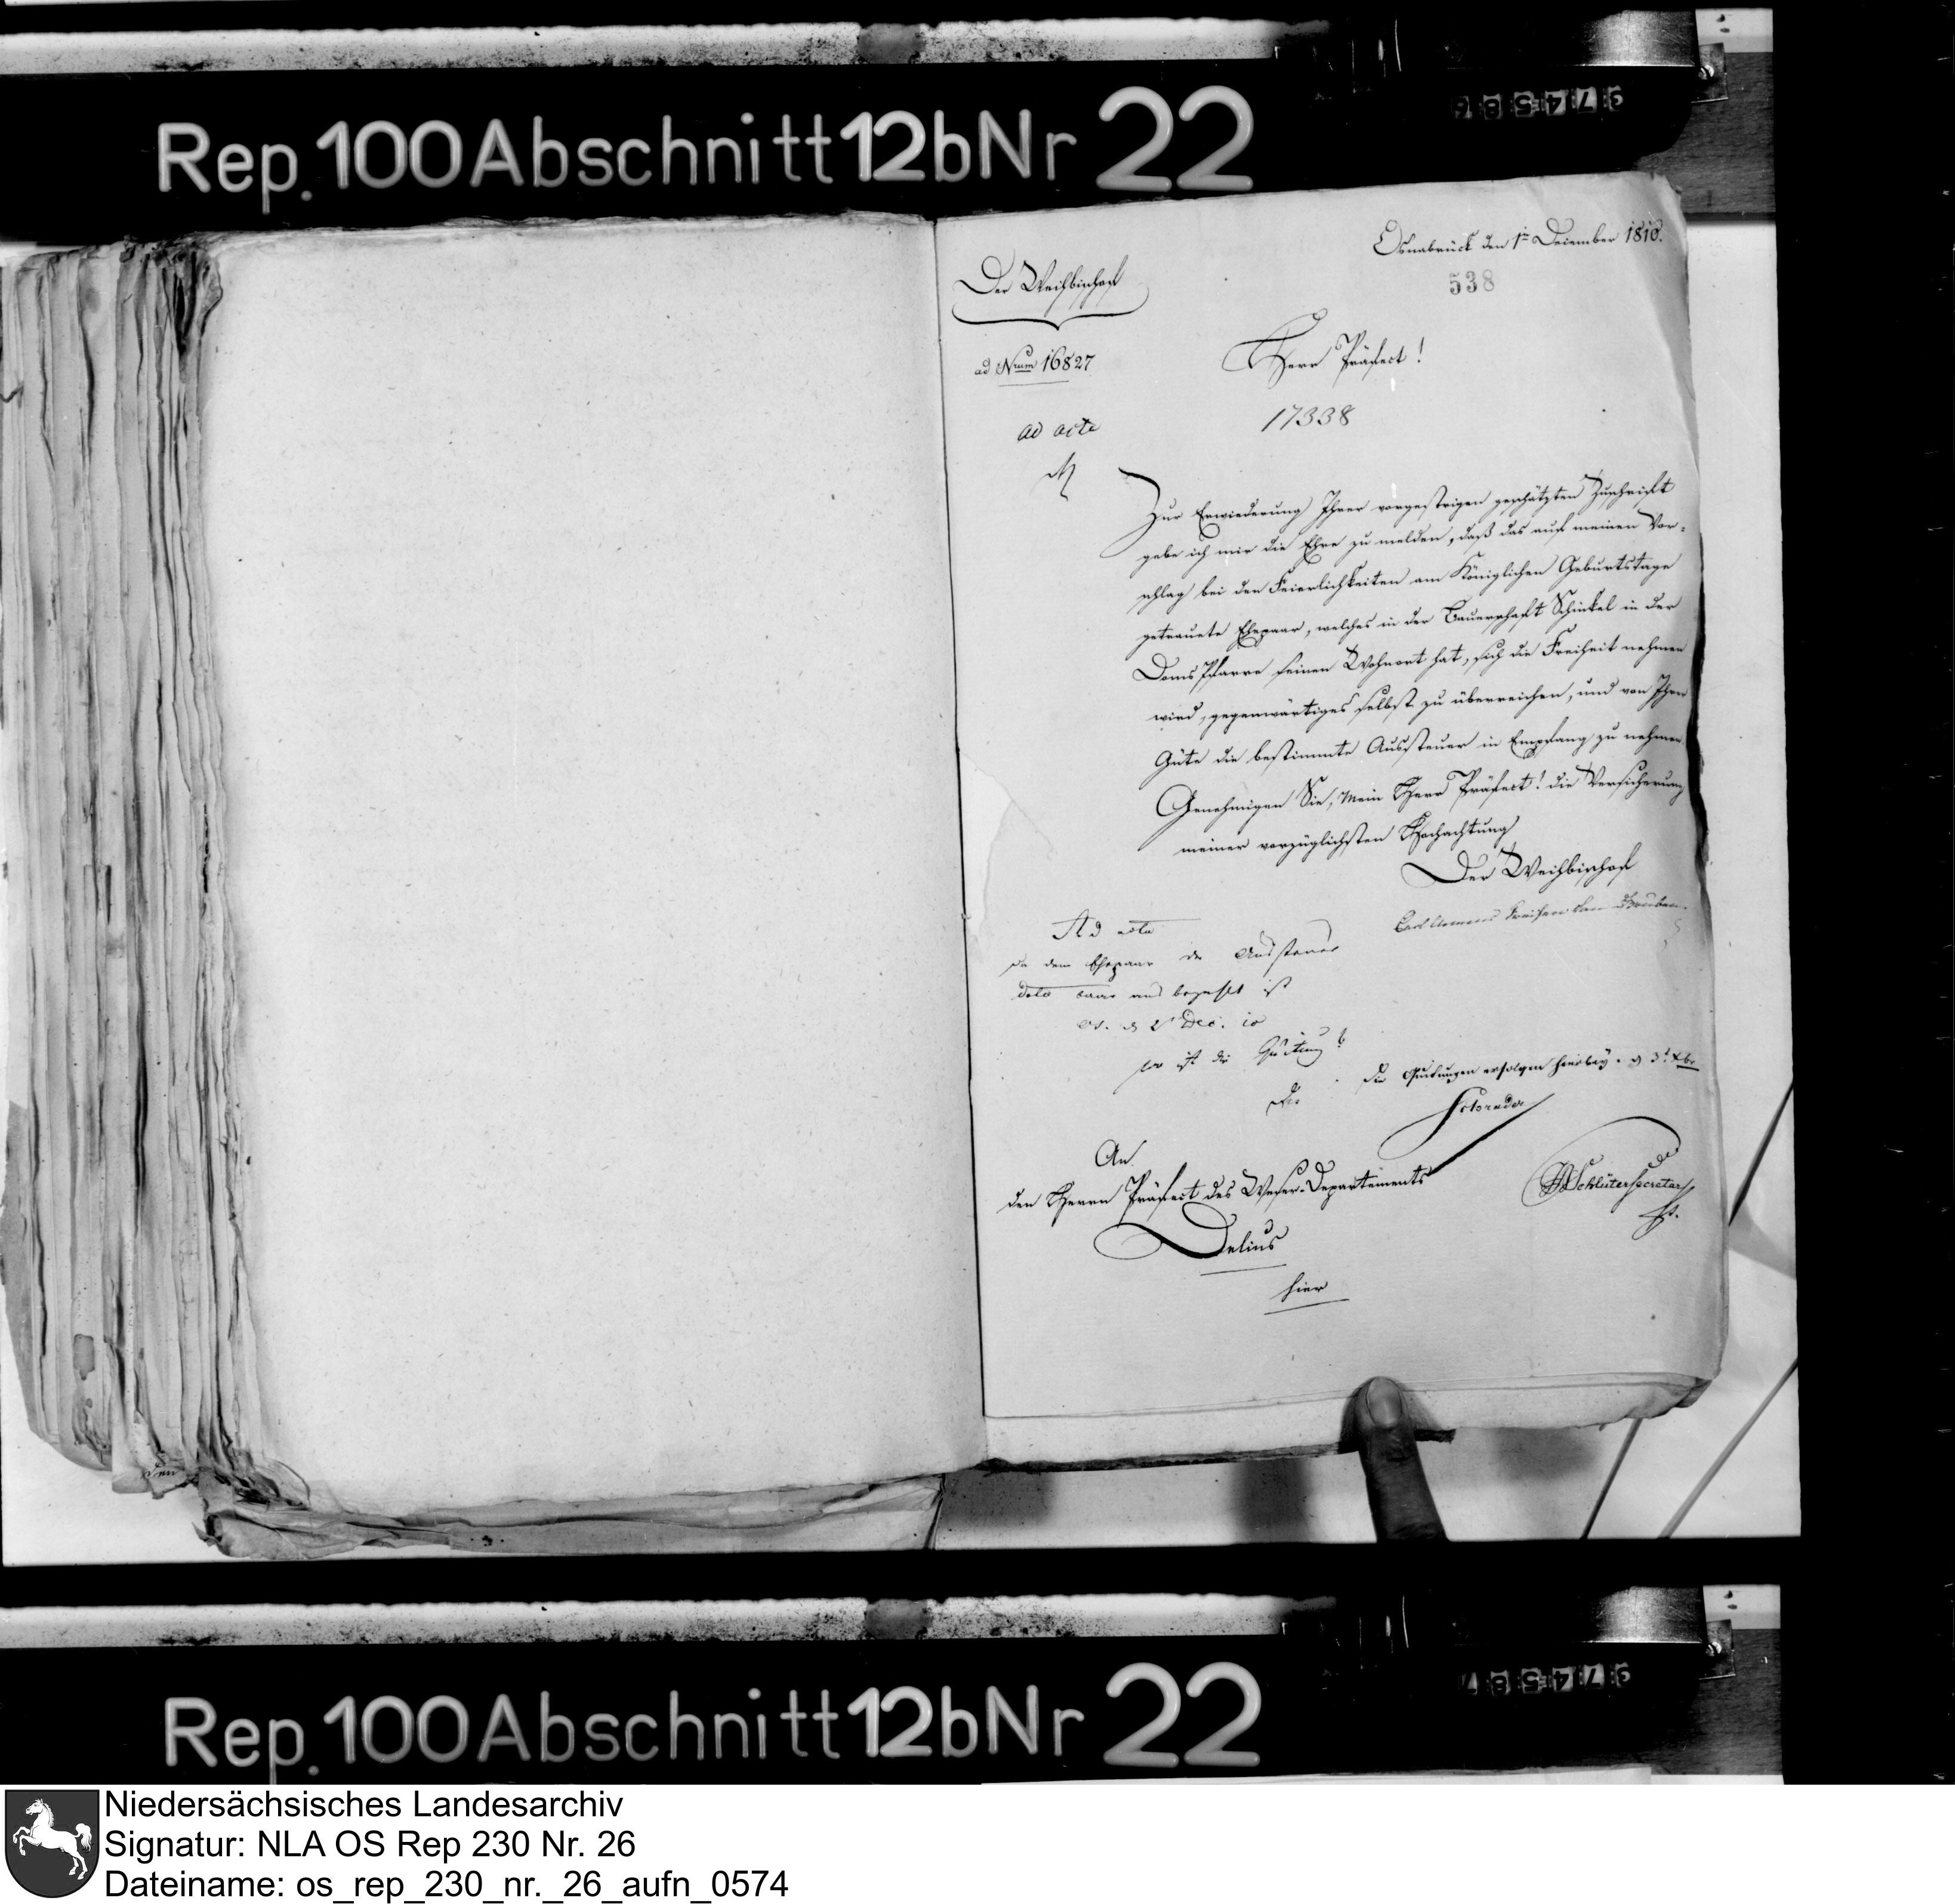 Rep. 100 Abschnitt 12b Nr 22
Osnabrück den 1ten December 1810.
538
Der Weihbischof
ad Num 16827
Herr Präfect!
17338
ad acta
Zur Erwiederung Ihrer vorgestrigen geschätzten Zuschrift
gebe ich mir die Ehre zu melden, daß das auf meinen Vor-
schlag bei den Feierlichkeiten am Königlichen Geburtstage
getrauete Ehepaar, welches in der Bauerschaft Schinkel in der
Doms Pfarre seinen Wohnort hat, sich die Freiheit nehmen
wird, gegenwärtiges selbst zu überreichen, und von Ihrer
Güte die bestimmte Aussteuer in Empfang zu nehmen.
Genehmigen Sie, Mein Herr Präfect! die Versicherung
meiner vorzüglichsten Hochachtung
Der Weihbischof
Carl Clemens Freiherr von Gruben
Ad acta
da dem Ehepaar die Aussteuer
dato baar aus bezahlt ist
Os. d 2 Dec. 10
wo ist die Quitung?
Die Quitungen erfolgen hierbey. d 3t Xbr
Schrader
An
den Herrn Präfect des Weser-Departements
Delius
hier
Schlüter Secretar
Rep. 100 Abschnitt 12b Nr 22
Niedersächsisches Landesarchiv
Signatur: NLA OS Rep 230 Nr. 26
Dateiname: os_rep_230_nr._26_aufn_0574